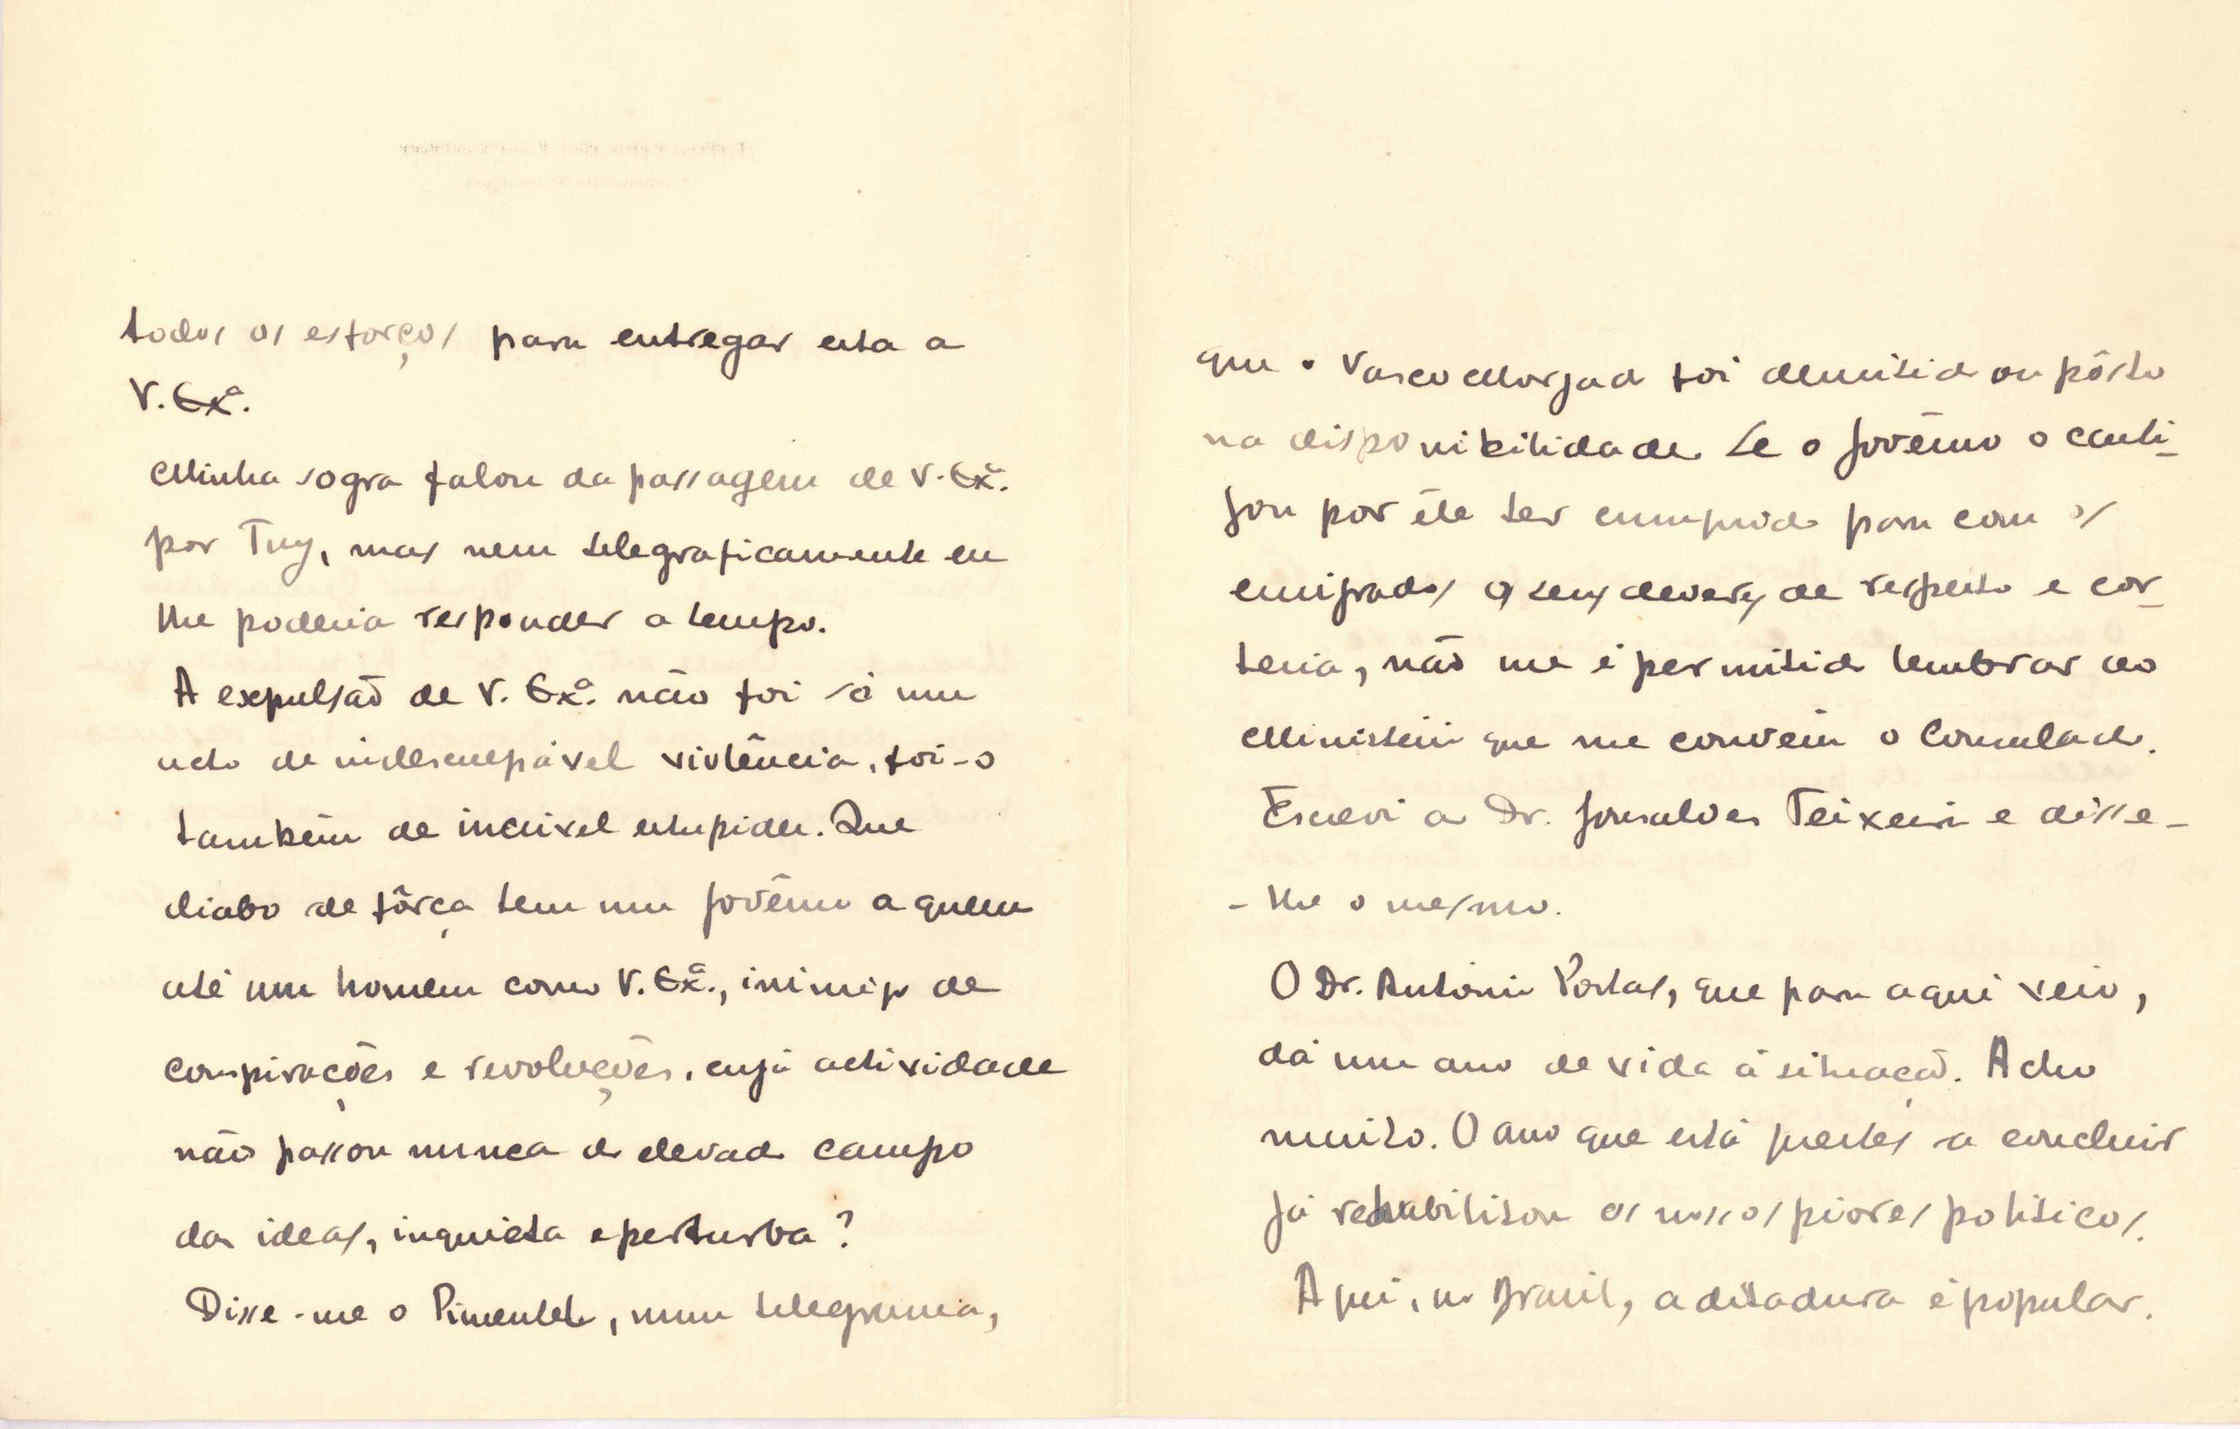 todos os esforços para entregar esta a
V. Exª.
Minha sogra falou da passagem de V. Exª.
por Tuy, mas nem telegraficamente eu
lhe poderia responder a tempo.
A expulsão de V. Exª. não foi só um
acto de indesculpável violência, foi-o
também de incrível estupidez. Que
diabo de fôrça tem um govêrno a quem
até um homem como V. Exª., inimigo de
conspirações e revoluções, cuja actividade
não passou nunca do elevado campo
das ideas, inquieta e perturba?
Disse-me o Pimentel, num telegrama,
que o Vasco Morgado foi demitido ou pôsto
na disponibilidade. Se o govêrno o casti-
gou por êle ter cumprido para com os
emigrados os seus deveres de respeito e cor-
tesia, não me é permitido lembrar ao
Ministério que me convém o Consulado.
Escrevi ao Dr. Gonsalves Teixeira e disse-
-lhe o mesmo.
O Dr. António Portas, que para aqui veio,
dá um ano de vida à situação. Acho
muito. O ano que está prestes a concluir
já rehabilitou os nossos piores políticos.
Aqui, no Brasil, a ditadura é popular.